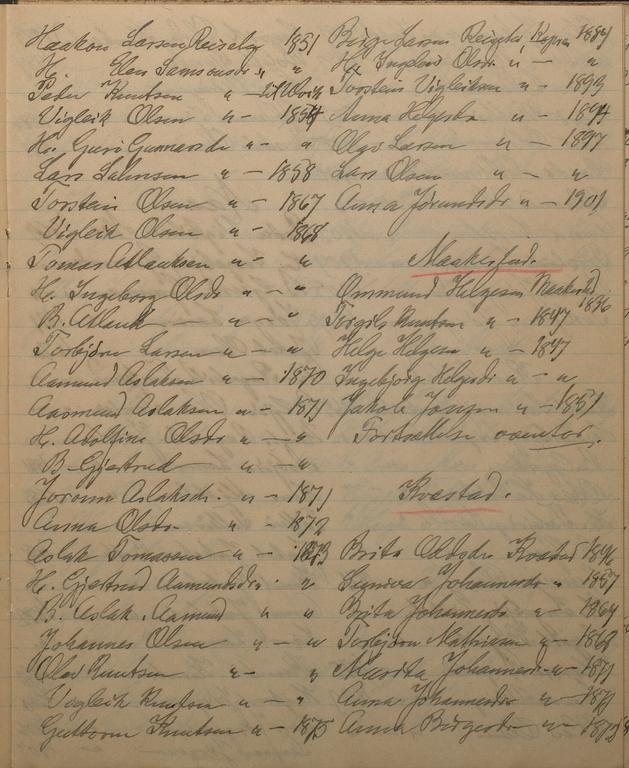 Haakon Larsen Reisæter 1851
H. Elen Samsonsdr " "
Peder Knutsen " —
Vigleik Olsen " — 1854
H. Guri Gunnarsdr " — "
Lars Larsen " — 1858
Torstein Olsen " — 1867
Vigleik Olsen " — 1868
Tomas Atlaksen " — "
H. Ingeborg Olsdr " — "
B. Atlak — " — "
Torbjörn Larsen " — "
Aamund Aslaksen " — 1870
Aasmund Aslaksen " — 1871
H. Adolfine Olsdr " — "
B. Gjertrud " — "
Joronn Aslaksdr. " — 1871
Anna Olsdr. " — 1872
Aslak Tomassen " — 1873
H. Gjertrud Aamundsdr " "
B. Aslak. Aamund " "
Johannes Olsen " — "
Olav Knutsen " — "
Vigleik Knutsen " — "
Guttorm Knutsen " — 1875
Birge Larsen 1889
H. Ingebord Olsdr " — "
Torstein Vigleiksen " — 1893
Anna Helgesdr " — 1894
Olav Larsen " — 1897
Lars Olsen " — "
Anna Jörundsdr " — 1901
Maakestad.
Ommund Helgesen Maakestad 1836
Torgils Knutsen " — 1847
Helge Helgesen " — 1847
Ingebjörg Helgesdr " — "
Jakob Josefsen " — 1851
Fortsættelse ovenfor.
Kvæstad.
Brita Kvæstad 1846
Signiva Johannesdr " 1857
Brita Johannesdr " — 1864
Torbjörn Mathiesen " — 1868
Marita Johannesdr " — 1871
Anna Johannesdr " — 1871
Anna Birgesdr " — 1873